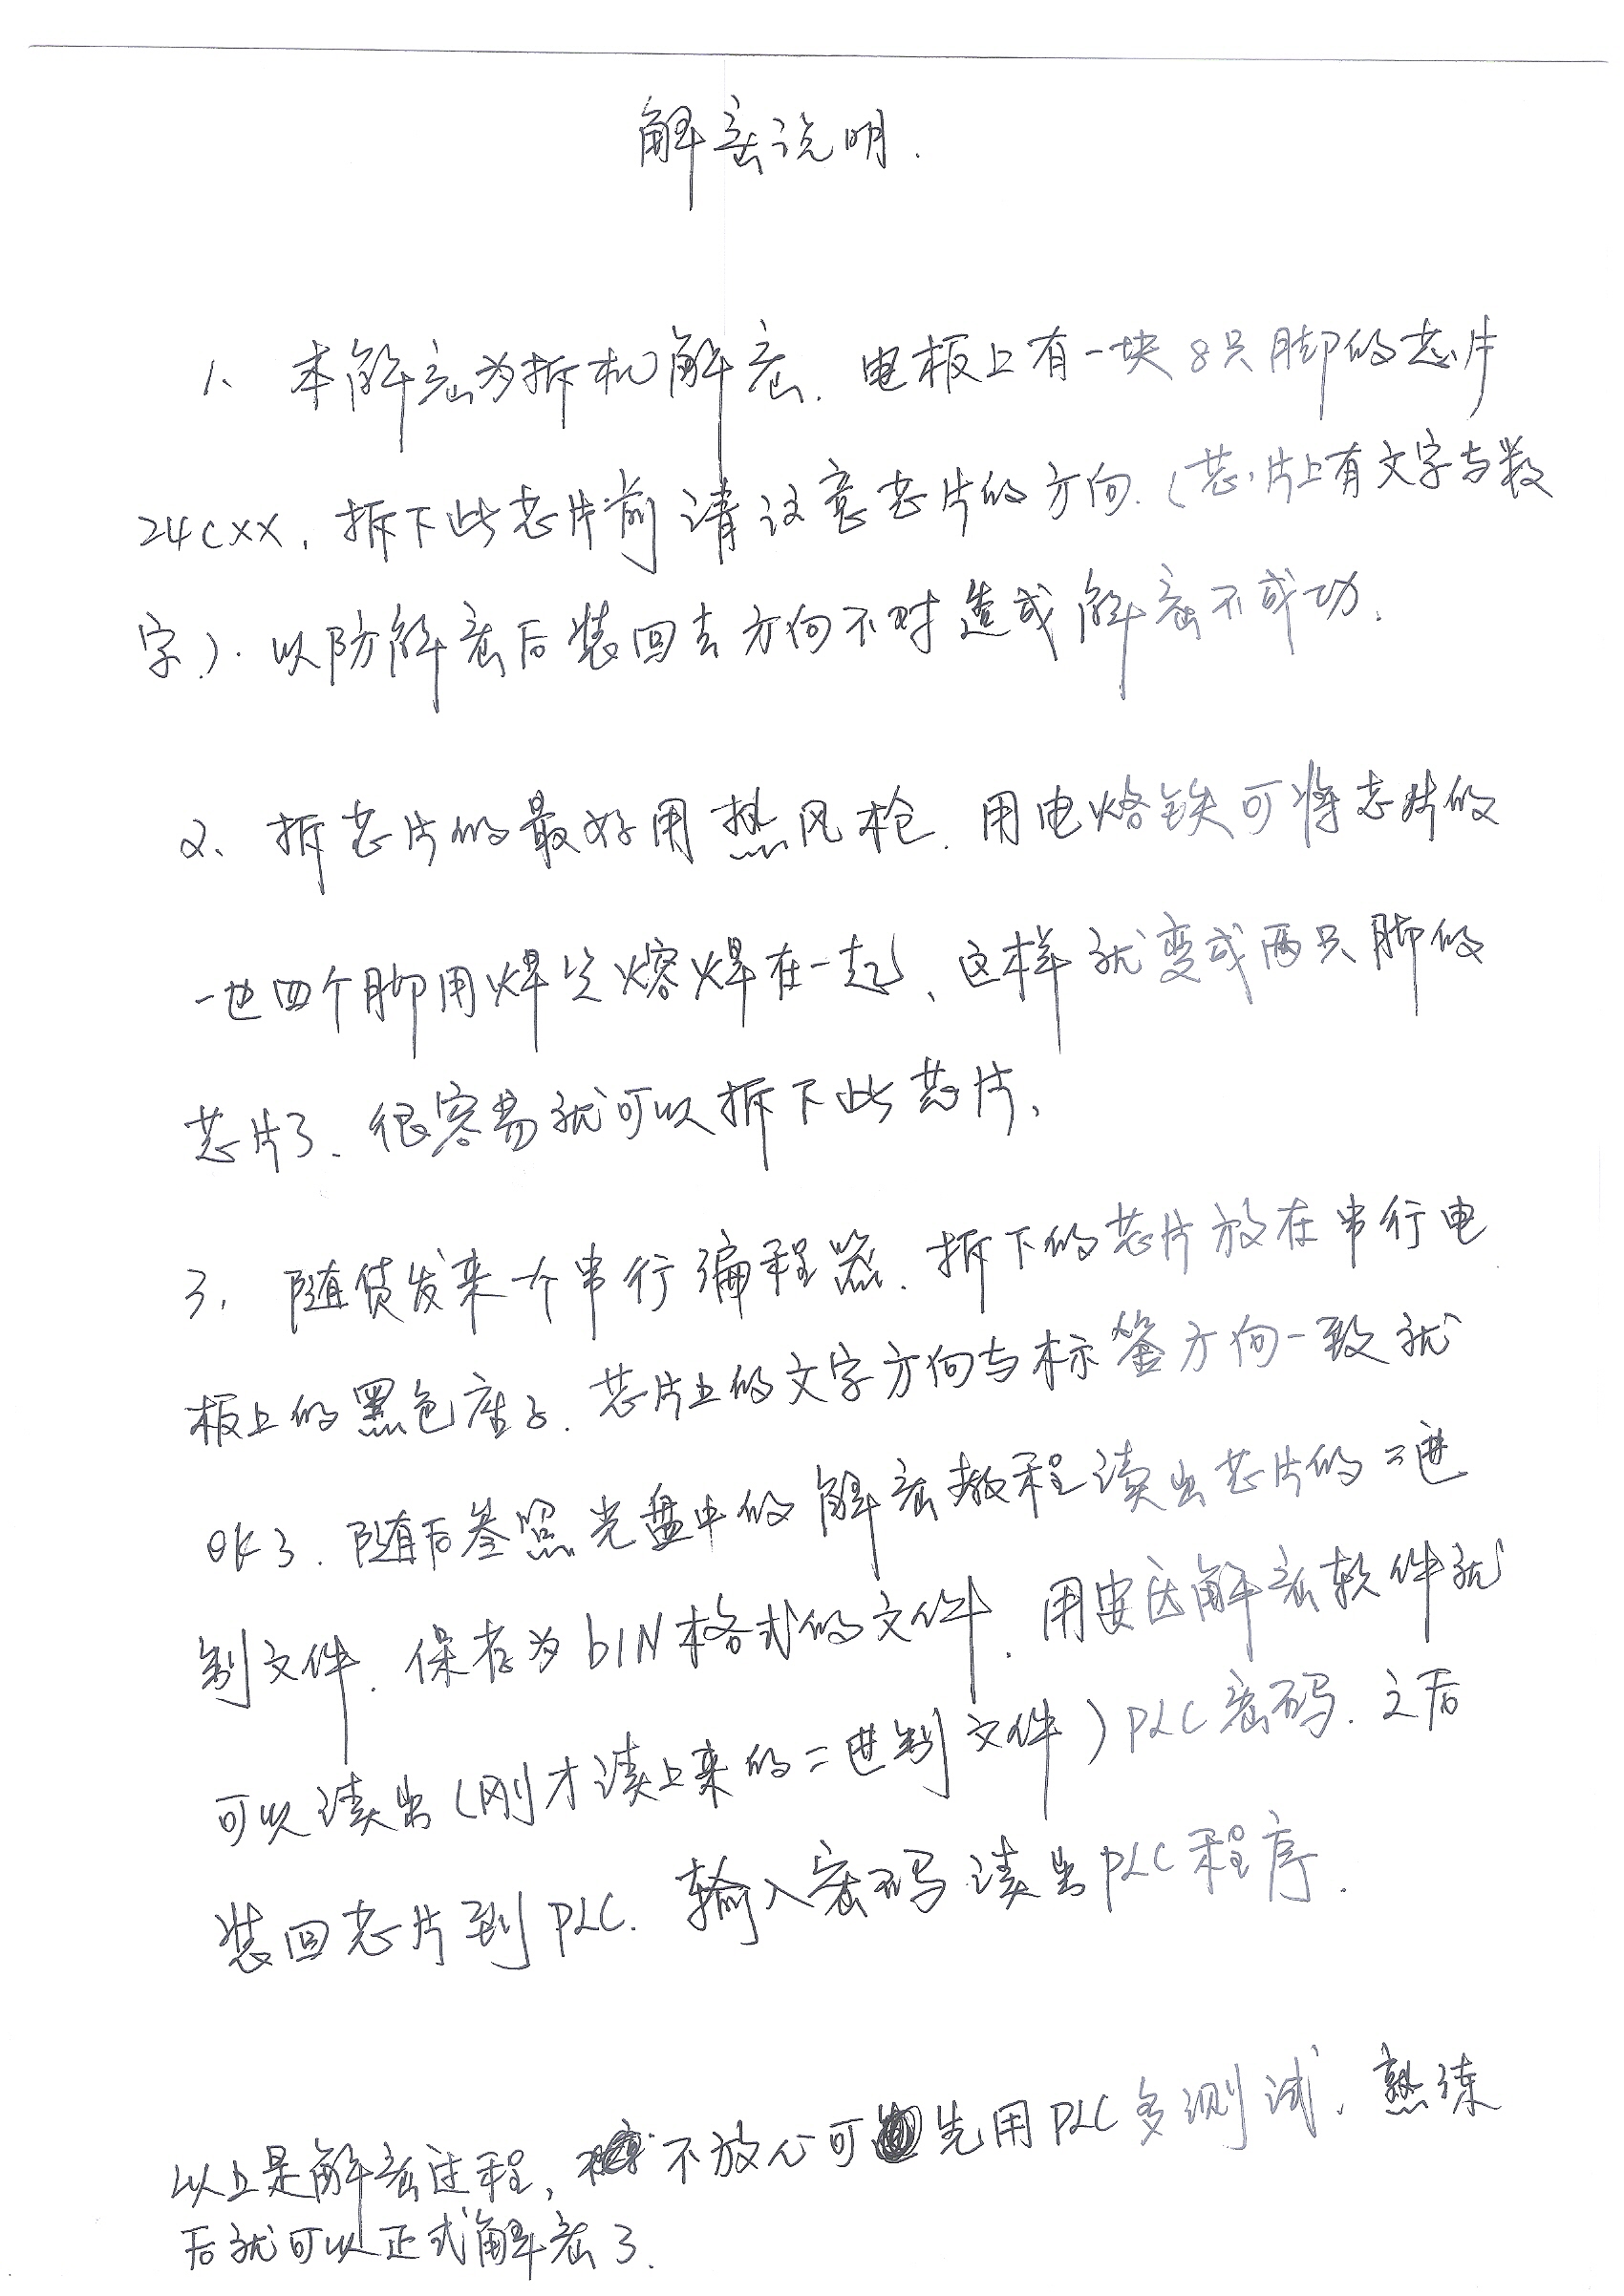 解密说明.
1、本解密为拆机解密.电板上有一块8只脚的芯片
24CXX,拆下此芯片前请注意芯片的方向.(芯片上有文字与数
字).以防解密后装回去方向不对造成解密不成功.
2、拆芯片的最好用热风枪.用电烙铁可将芯片的
一边四个脚用焊锡熔焊在一起、这样就变成两只脚的
芯片了、很容易就可以拆下此芯片、
3、随货发来一个串行编程器、拆下的芯片放在串行电
板上的黑色座子.芯片上的文字方向与标签方向一致就
OK了.随后参照光盘中的解密教程读出芯片的二进
制文件.保存为bIN格式的文件.用解密软件就
可以读出(刚才读上来的二进制文件)PLC密码.之后
装回芯片到PLC.输入密码读出PLC程序.
以上是解密过程,不放心可先用PLC多测试、熟练
后就可以正式解密了.